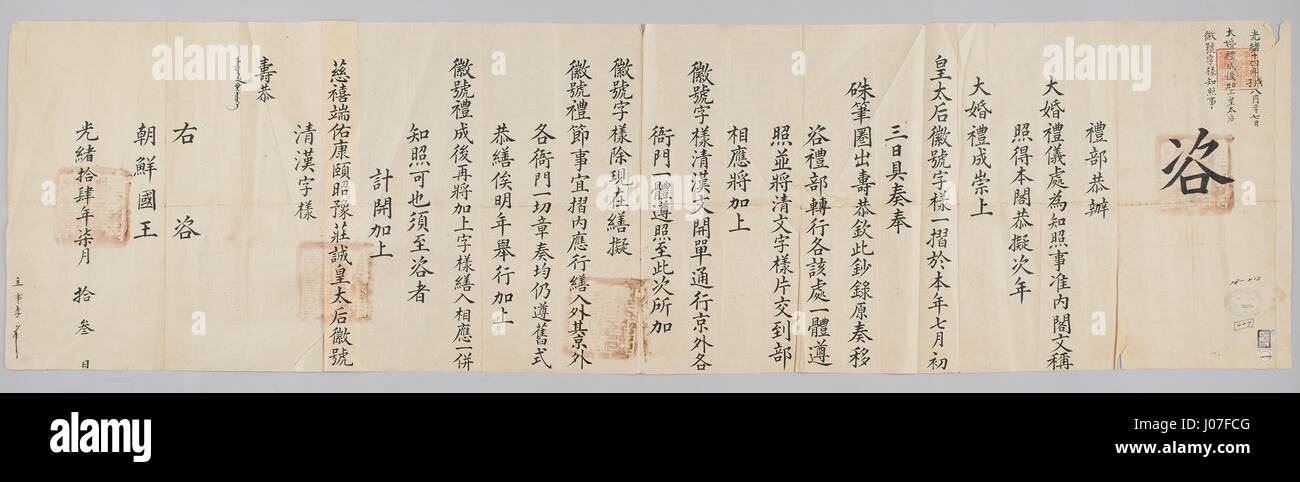 光緒十四年戊子八月二十七日
大婚禮成後加上皇太后
徽號字樣知照事
咨
禮部恭辦
大婚禮儀處為知照事准內閣文稱
照得本閣恭擬次年
大婚禮成崇上
皇太后徽號字樣一摺於本年七月初
三日具奏奉
硃筆圈出壽恭欽此鈔錄原奏移
咨禮部轉行各該處一體遵
照並將清文字樣片交到部
相應將加上
徽號字樣清漢文開單通行京外各
衙門一體遵照至此次所加
徽號字樣除現在繕擬
徽號禮節事宜摺內應行繕入外其京外
各衙門一切章奏均仍遵舊式
恭繕俟明年舉行加上
徽號禮成後再將加上字樣繕入相應一併
知照可也須至咨者
計開加上
慈禧端佑康頤昭豫莊誠皇太后徽號
清漢字樣
壽恭
右咨
朝鮮國王
光緒拾肆年柒月拾叁日
主事李
alamy
Image ID: J07FCG
www.alamy.com